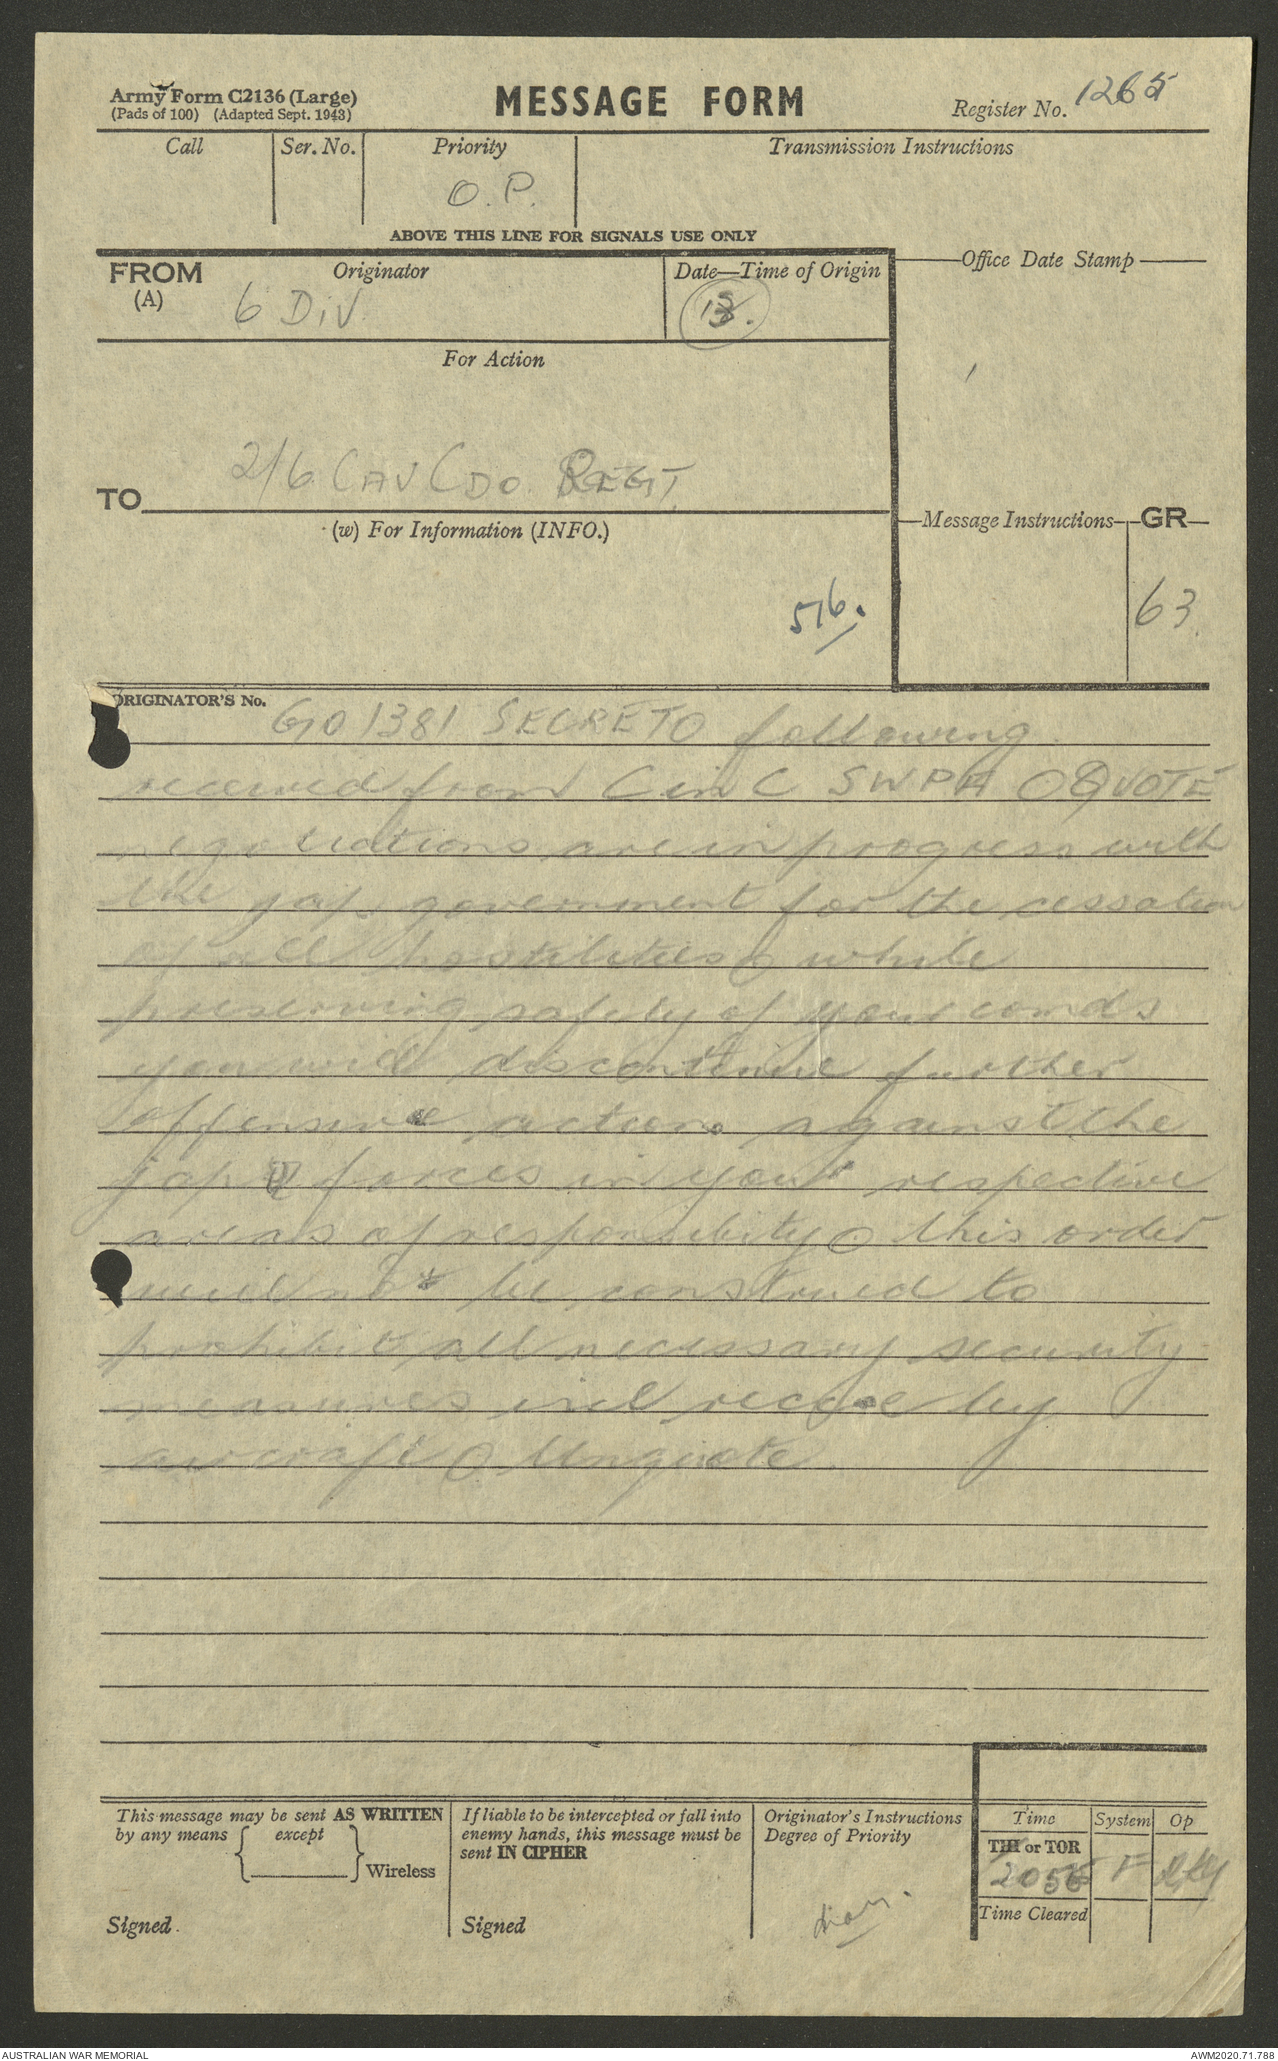 Army Form C2136 (Large)
(Pads of 100) (Adapted Sept. 1943)
MESSAGE FORM
Register No. 1265
Call
Ser. No.
Priority
O.P.
Transmission Instructions
ABOVE THIS LINE FOR SIGNALS USE ONLY
FROM
(A)
Originator
6 Div.
Date—Time of Origin
Office Date Stamp
For Action
TO 2/6 CAV CDO REGT
(w) For Information (INFO.)
Message Instructions
GR
63
576.
ORIGINATOR'S No.
GO 1381 SECRET O following
received from C in C SWPA O QUOTE
negotiations are in progress with
the jap government for the cessation
of all hostilities O while
preserving safety of your comds
you will discontinue further
offensive action against the
jap forces in your respective
areas of responsibility O this order
will not be construed to
prohibit all necessary security
measures incl recce by
aircraft O Unquote.
This message may be sent AS WRITTEN
by any means { except } Wireless
Signed
If liable to be intercepted or fall into
enemy hands, this message must be
sent IN CIPHER
Signed
Originator's Instructions
Degree of Priority
Time
System
Op
THI or TOR
2056
F
Time Cleared
AUSTRALIAN WAR MEMORIAL
AWM2020.71.788